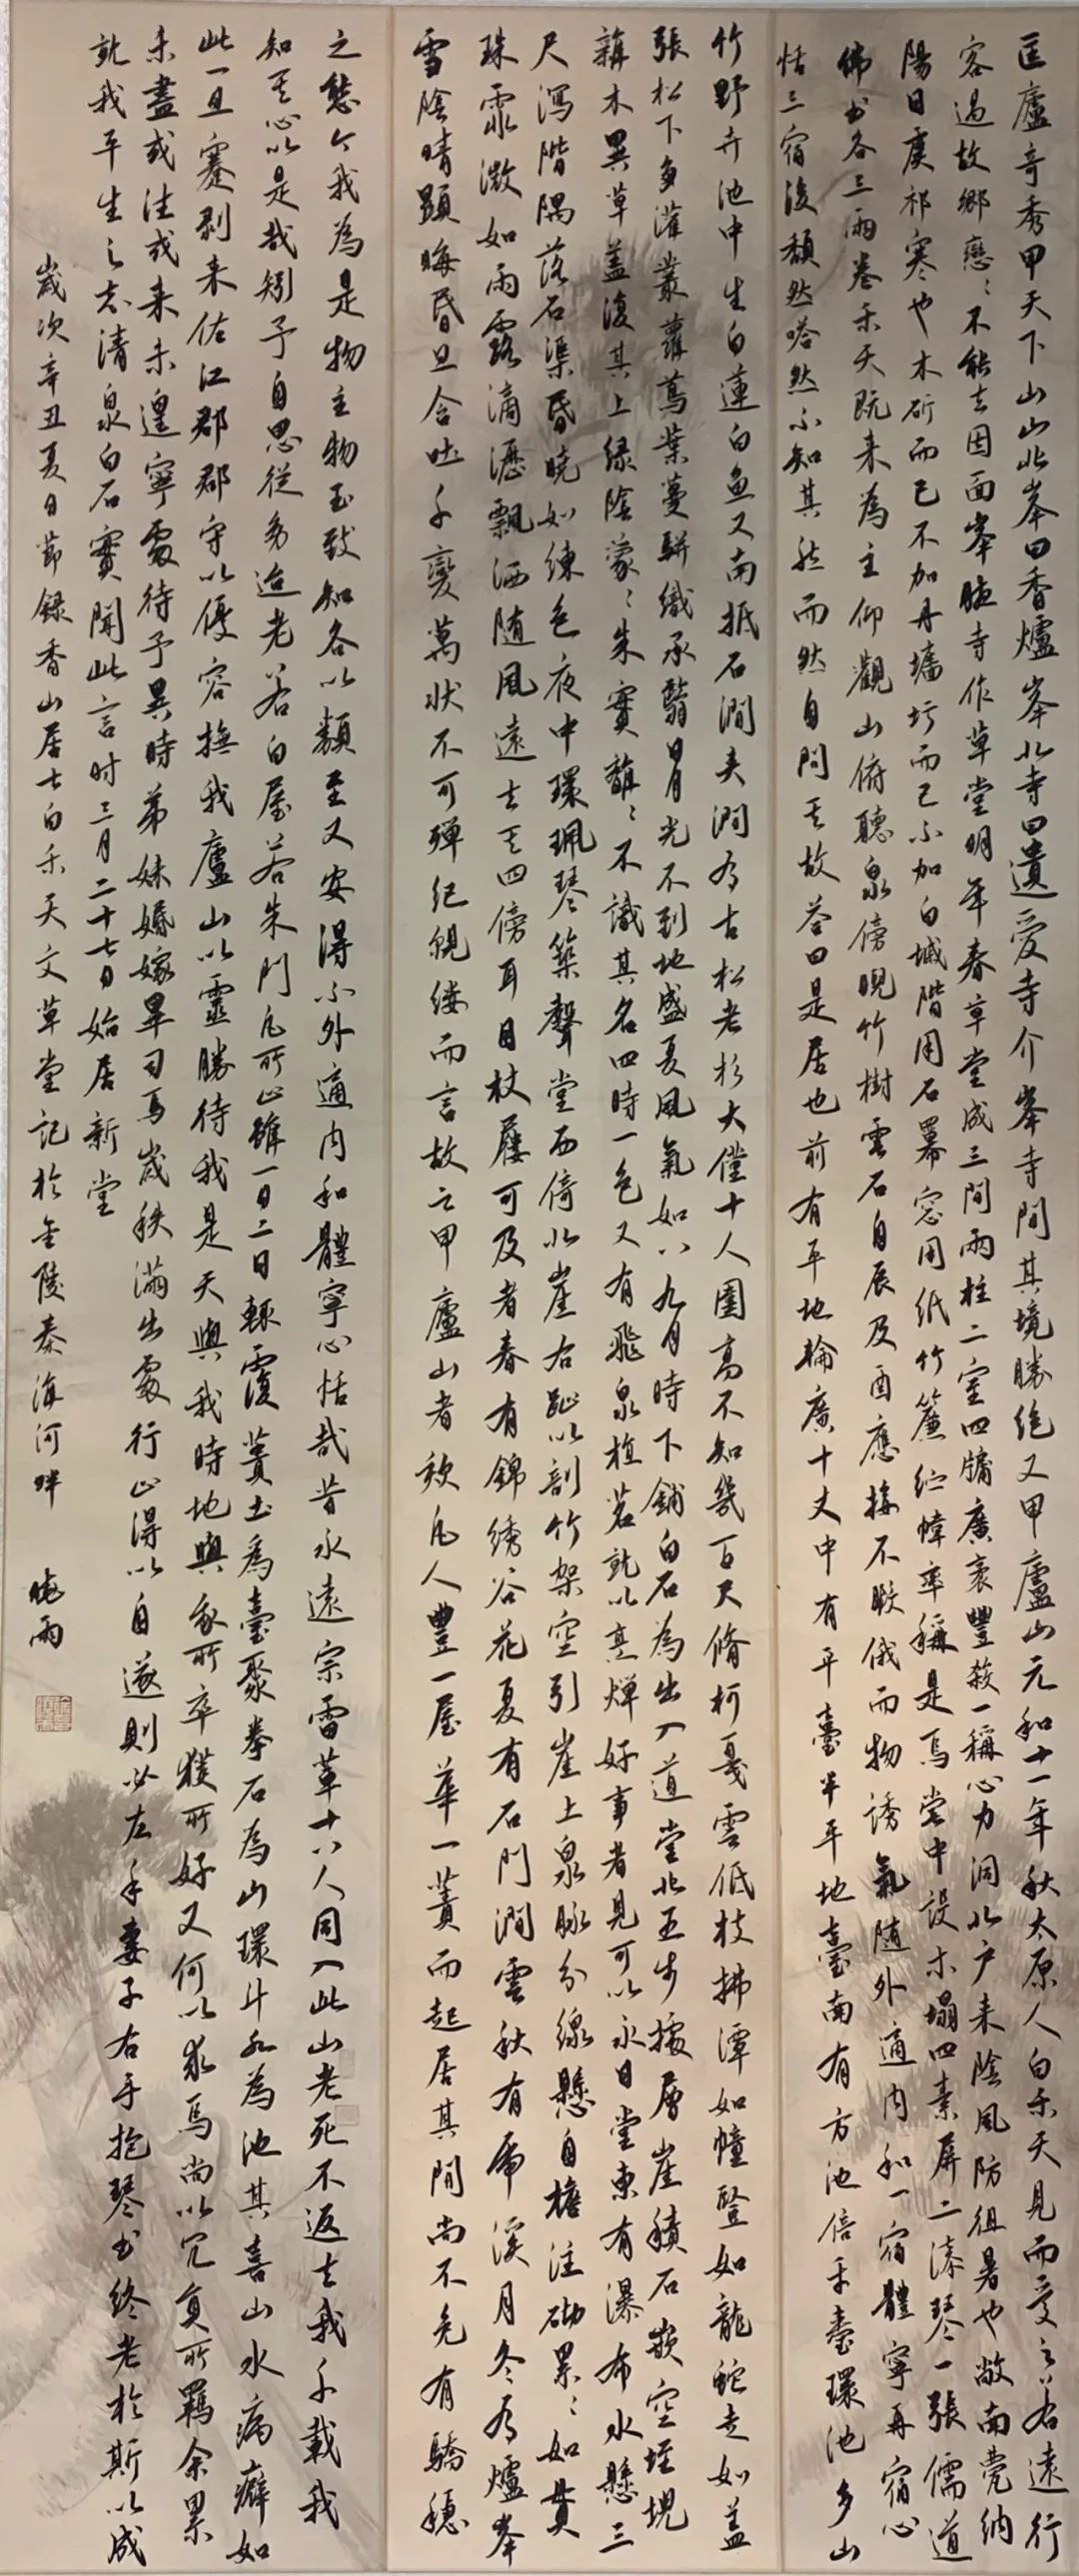 匡廬奇秀甲天下山山北峯曰香爐峯北寺曰遺愛寺介峯寺間其境勝絶又甲廬山元和十一年秋太原人白乐天見而愛之若遠行
客過故鄉戀〻不能去因面峯腋寺作草堂明年春草堂成三間兩柱二室四牖廣袤豐殺一稱心力洞北户来陰風防徂暑也敞南甍納
陽日虞祁寒也木斫而已不加丹墻圬而已不加白堿階用石冪窓用紙竹簾紵幃率稱是焉堂中設木榻四素屏二漆琴一張儒道
佛书各三兩卷乐天既来為主仰觀山俯聽泉傍睨竹樹雲石自辰及酉應接不暇俄而物誘氣随外適内和一宿體寧再宿心
恬三宿後頹然嗒然不知其然而然自問其故荅曰是居也前有平地輪廣十丈中有平臺半平地臺南有方池倍平臺環池多山
竹野卉池中生白蓮白魚又南抵石澗夹澗有古松老杉大僅十人圍高不知幾百尺脩柯戛雲低枝拂潭如幢竪如龍蛇走如盖
張松下多灌叢蘿蔦葉蔓駢織承翳日月光不到地盛夏風氣如八九月時下鋪白石為出入道堂北五步據層崖積石嵌空垤堄
雜木異草盖復其上緑陰蒙〻朱實離〻不識其名四時一色又有飛泉植茗就以烹燀好事者見可以永日堂東有瀑布水懸三
尺瀉階隅落石渠昏曉如練色夜中環珮琴築聲堂西倚北崖右趾以剖竹架空引崖上泉脉分線懸自檐注砌累〻如貫
珠霏微如雨露滴瀝飄洒随風遠去其四傍耳目杖屨可及者春有錦綉谷花夏有石門澗雲秋有虎溪月冬有爐峯
雪陰晴顯晦昏旦含吐千變萬状不可殫纪覼缕而言故云甲廬山者欤凡人豊一屋華一簀而起居其間尚不免有驕穩
之態今我為是物主物至致知各以類至又安得不外適内和體寧心恬哉昔永遠宗雷輩十八人同入此山老死不返去我千載我
知其心以是哉矧予自思從幼迨老若白屋若朱門凡所止雖一日二日輒覆蕢土為臺聚拳石為山環斗水為池其喜山水病癖如
此一旦蹇剥来佐江郡郡守以優容撫我廬山以靈勝待我是天與我時地與我所卒獲所好又何以求焉尚以冗員所羈余累
未盡或往或来未遑寧處待予異時弟妹婚嫁畢司馬歲秩滿出處行止得以自遂則必左手妻子右手抱琴书终老於斯以成
就我平生之志清泉白石實聞此言时三月二十七日始居新堂
歲次辛丑夏日節録香山居士白乐天文草堂記於金陵秦淮河畔 曉雨